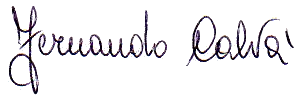 Fernando Calvà